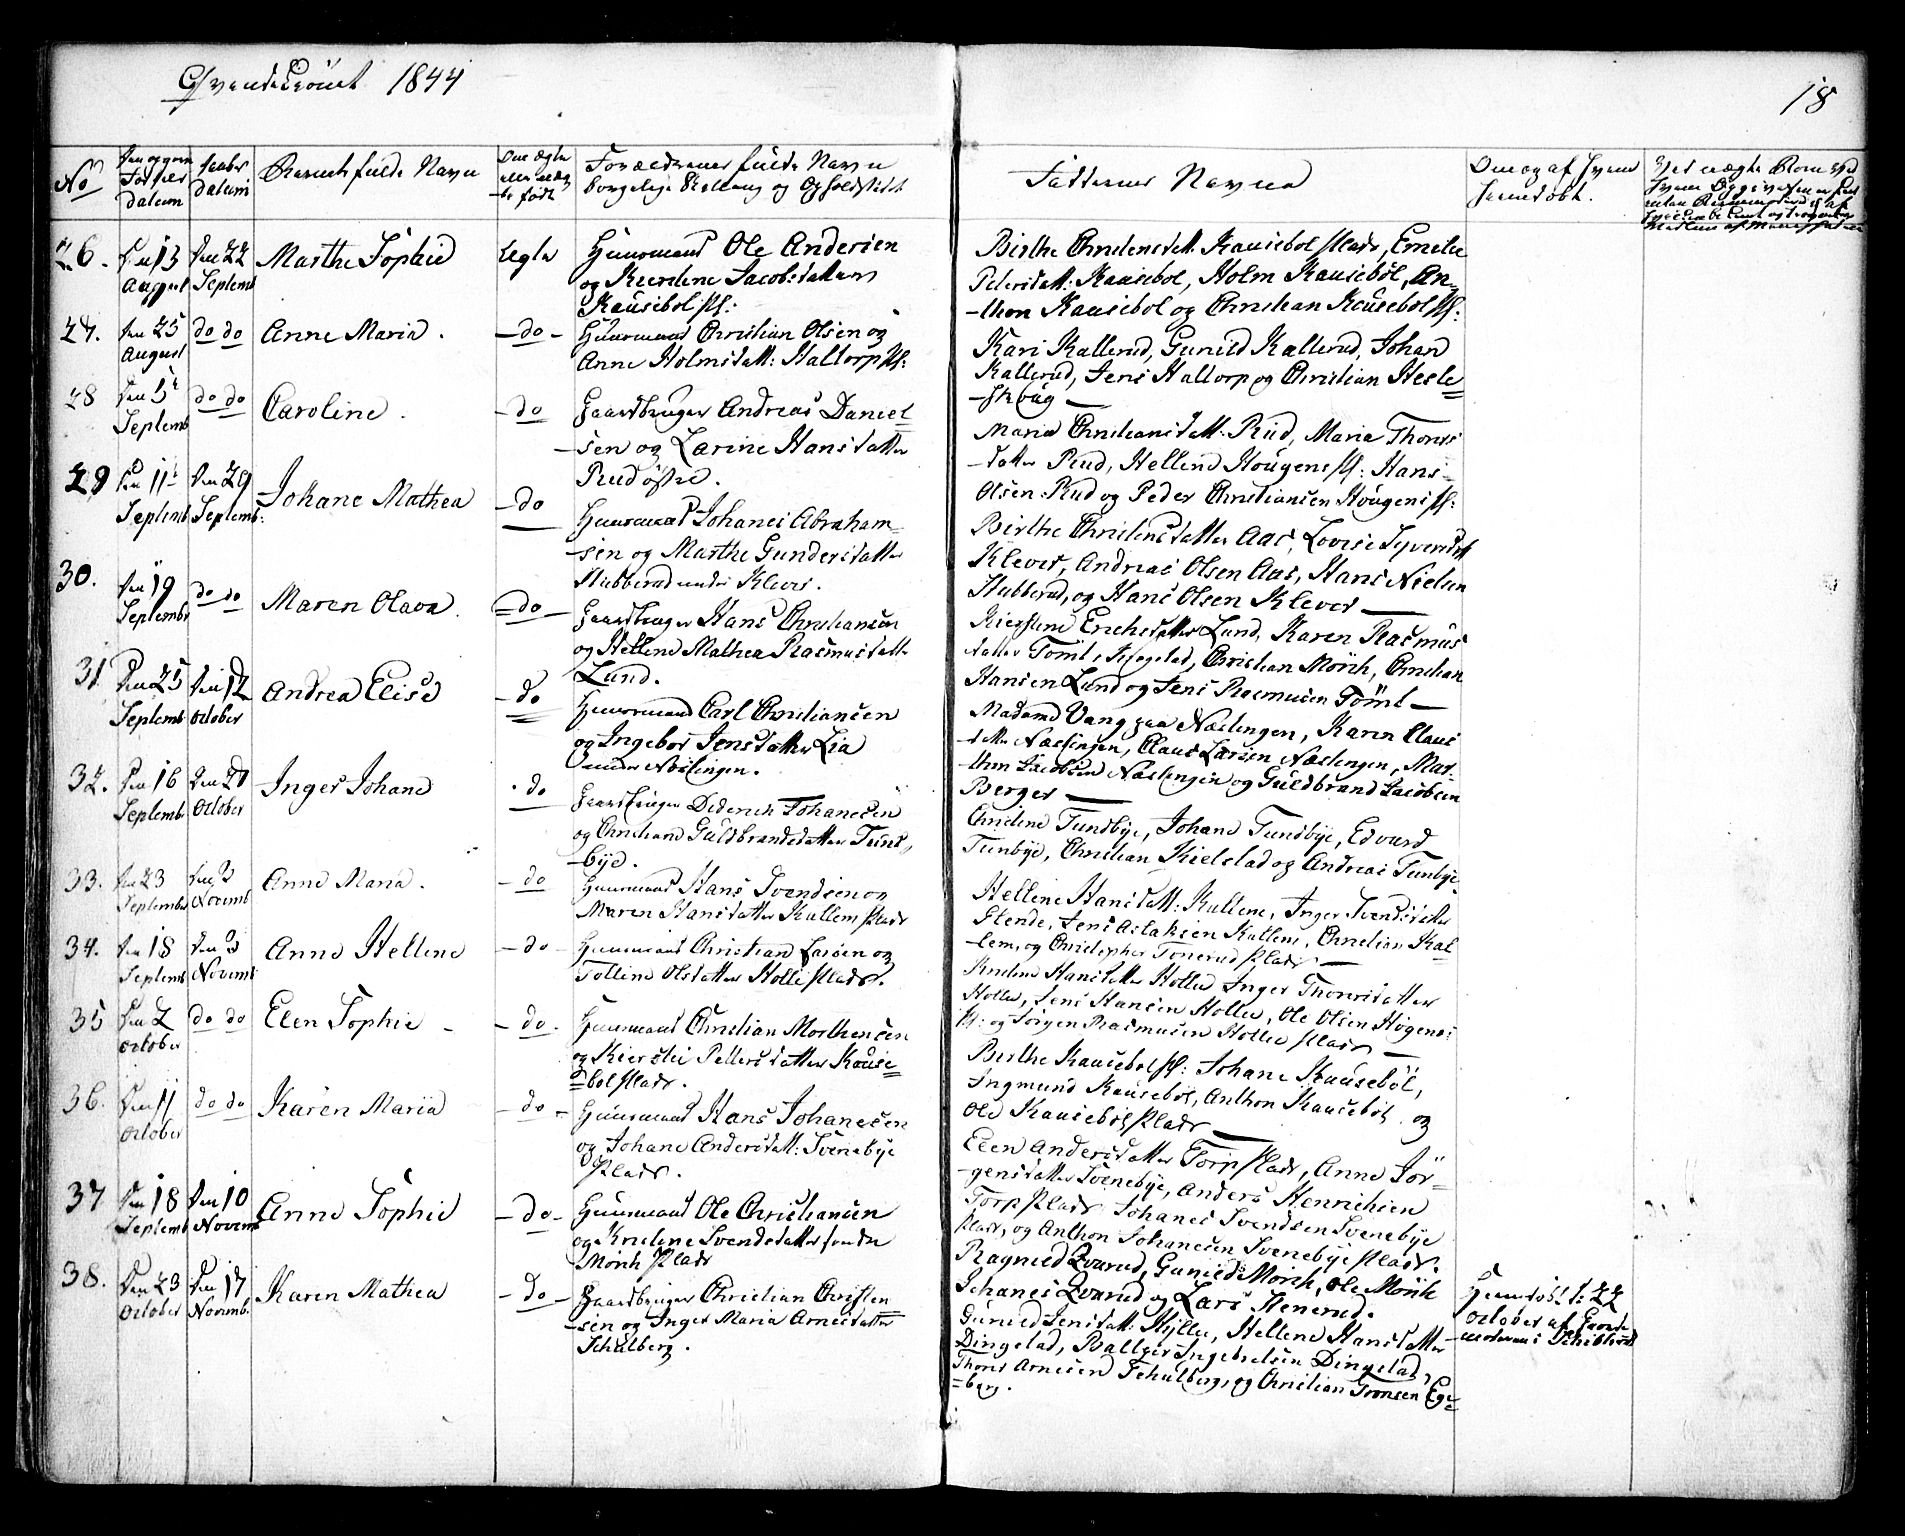 Qvendekiönet 1844
18
No
Den
Fødsels
Datum
Daabs
Datum
Barnets fulde Navn
Om Ægte
eller uæg-
te født
Forældrenes fulde Navn
borgelige Stilling og Opholdsted
Faddernes Navne
Om og af hvem
hjemdøbt.
26.
Den 13
August
Den 22
Septemb
Marthe Sophie
Ægte
Huusmand Ole Andersen
og Kierstine Jacobsdatter
Kausebøl Pl:
Birthe Christensdatt. Kausebøl Plads, Emelie
Petersdatt: Kausebøl, Holm Kausebøl, An-
thon Kausebøl og Christian Kausebøl Pl:
27.
Den 25
August
do do
Anne Maria.
-do-
Huusmand Christian Olsen og
Anne Holmsdatt: Haltorp Pl:
Kari Kallerud, Gunild Kallerud, Johan
Kallerud, Jens Haltorp og Christian Hesle-
-skoug
28
Den 5te
Septemb
do do
Caroline.
-do
Gaardbruger Andreas Daniel-
-sen og Larine Hansdatter
Rud østre.
Maria Christiansdatt. Rud, Maria Thores
-datter Rud, Hellene Hougens Pl: Hans
Olsen Rud og Peder Christiansen Hougens Pl:
29
Den 11te
Septemb
Den 29
Septemb:
Johane Mathea
-do
Huusmand Johanes Abraham-
-sen og Marthe Gundersdatter
Hubberud under Klever.
Birthe Christensdatter Aas, Lovise Syversdt
Klever, Andreas Olsen Aas, Hans Nielsen
Hubberud, og Hans Olsen Klever
30.
Den 19
Septembr
do do
Maren Olava.
-do-
Gaardbruger Hans Christiansen
og Hellene Mathea Rasmusdatt.
Lund.
Kierstine Erichsdatter Lund, Karen Rasmus
datter Tömt, Christian Mörch, Christian
Hansen Lund og Jens Rasmusen Tömt
31
Den 25
Septemb
Den 12
October
Andrea Elise
-do
Huusmand Carl Christiansen
og Ingebor Jensdatter Lia
under Næslingen.
Madame Vang paa Næslingen, Karen Claus
datter Næslingen, Claus Larsen Næslingen, Mar-
-thin Jacobsen Næslingen og Guldbrand Jacobsen
Berger
32.
Den 16
Septemb
Den 20
October
Inger Johane
-do
Gaardbruger Dederich Johanesen
og Christiane Guldbrandsdatter Tund,
-bye.
Christine Tundbye, Johane Tundbye, Edvard
Tunbye, Christian Kielstad og Andreas Tunbye.
33.
Den 23
Septembr
Den 3
Novemb
Anne Maria.
-do
Huusmand Hans Svendsen og
Maren Hansdatter Kallem Plads
Hellene Hansdatt: Kallem, Inger Svendsdatter
Stende, Jens Aslaksen Kallem, Christian Kal-
-lem, og Christopher Tonerud Plads
34.
Den 18
Septemb
Den 3
Novemb
Anne Hellene
-do-
Huusmand Christian Larsen og
Tolline Olsdatter Holle Plads.
Hansdatter Holle Inger Thoresdatter
Holle, Jens Hansen Holle, Ole Olsen Högens
Pl: og Jörgen Rasmusen Holle Plads
35
Den 2
October
do do
Elen Sophie
-do-
Huusmand Christian Morthensen
og Kierstie Pettersdatter Kause-
-bøl Plads.
Birthe Kausebøl Pl: Johane Kausebøl,
Ingmund Kausebøl, Anthon Kausebøl og
Ole Kausebøl Plads
36.
Den 11
October
do do
Karen Maria
-do-
Huusmand Hans Johanesen
og Johane Andersdatt: Svenebye
Plads.
Elen Andersdatter Torp Plads, Anne Jör-
-gensdatter Svenebye, Anders Henrichsen
Torp Plads Johanes Svendsen Svenebye
Plads, og Anthon Johanesen Svenebye Plads.
37
Den 18
Septemb
Den 10
Novemb
Anne Sophie
-do-
Huusmand Ole Christiansen
og Kristine Svendsdatter søndre
Mörch Plads
Ragnild Qvarud, Gunild Mörch, Ole Mörch
Johanes Qvarud og Lars Stenerud.
38.
Den 23
October
Den 17
Novemb.
Karen Mathea
-do-
Gaardbruger Christian Christen-
-sen og Inger Maria Arnesdatter
Schulberg.
Gunild Jensdatt: Hylle, Hellene Hansdatter
Dingstad, Ballzer Ingebretsen Dingstad,
Thore Arnesen Schulberg, og Christian Tronsen Ege-
-berg.
Hjemdøbt d: 22
October af Jorde-
moderen i Schibtvedt